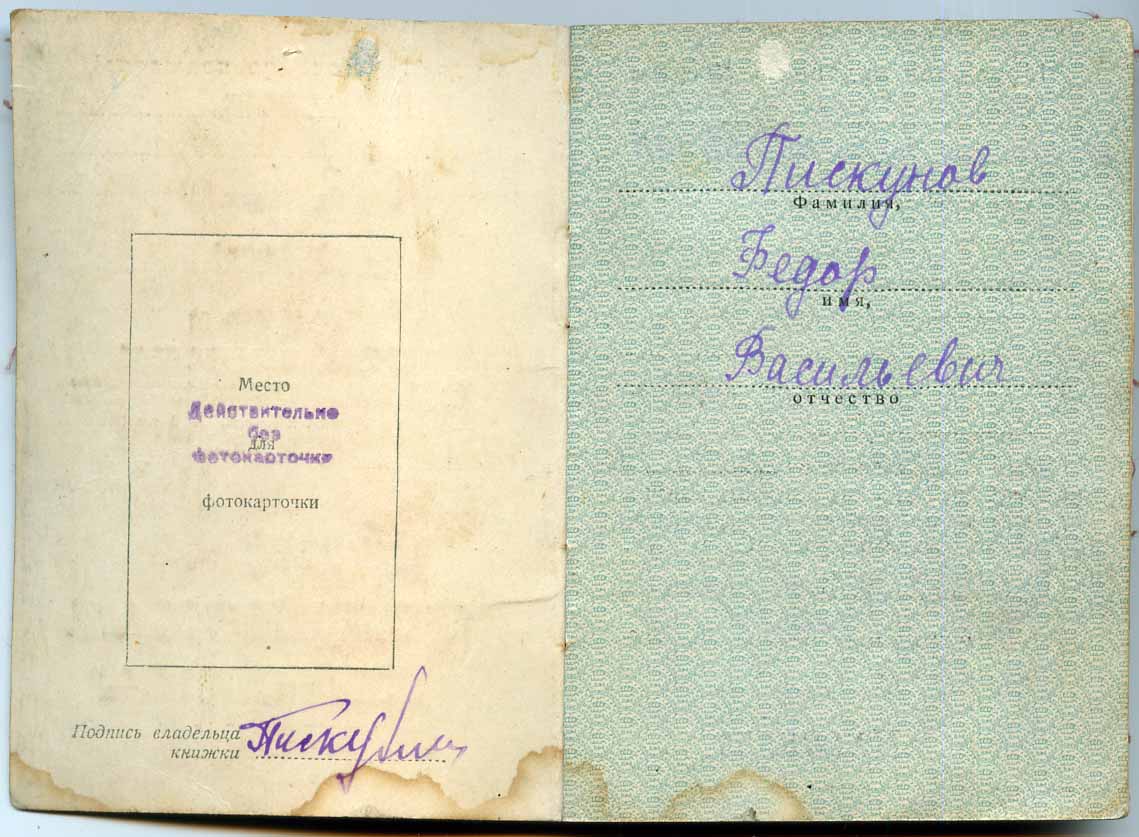 Место
Действительно
без
для
фотокарточки
фотокарточки
Подпись владельца
книжки
Пискунов
Фамилия,
Федор
имя,
Васильевич
отчество